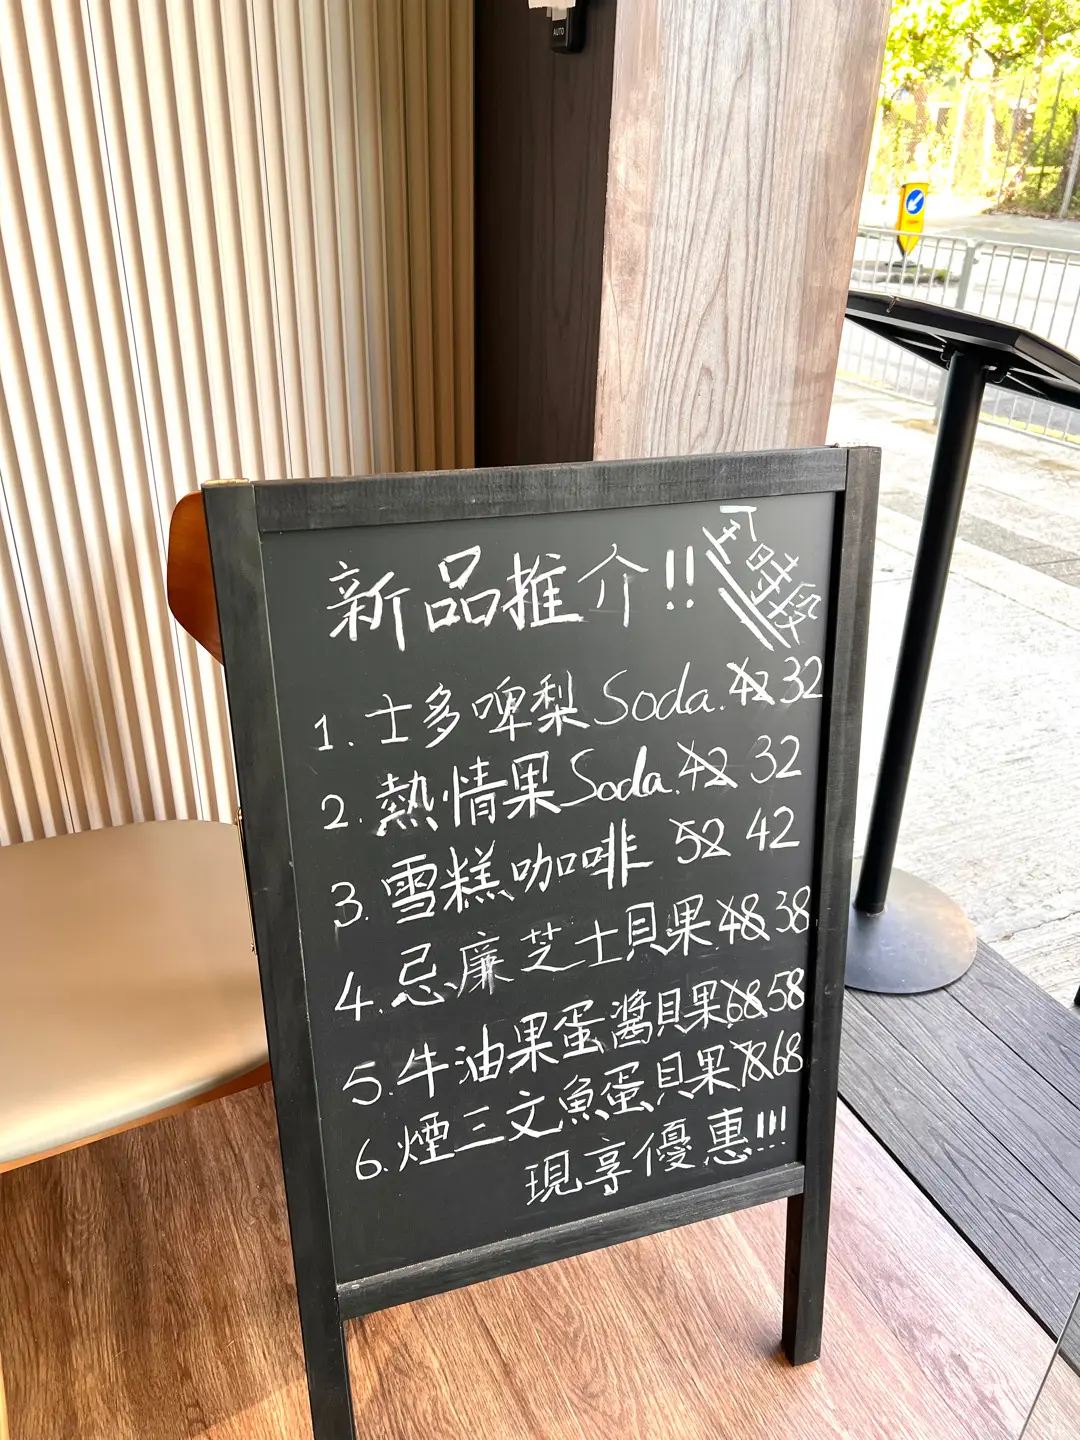 AUTO
新品推介!!
全日時段
1. 士多啤梨 Soda. 42 32
2. 熱情果 Soda. 42 32
3. 雪糕咖啡 52 42
4. 忌廉芝士貝果 48 38
5. 牛油果蛋醬貝果 68 58
6. 煙三文魚蛋貝果 78 68
現享優惠!!!